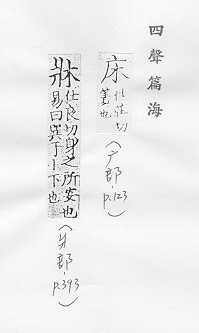 四聲篇海
床 仕莊切
蓋也
(广部-p.123)
牀 仕良切身之所安也
易曰巽于牀下也
(爿部-p.393)